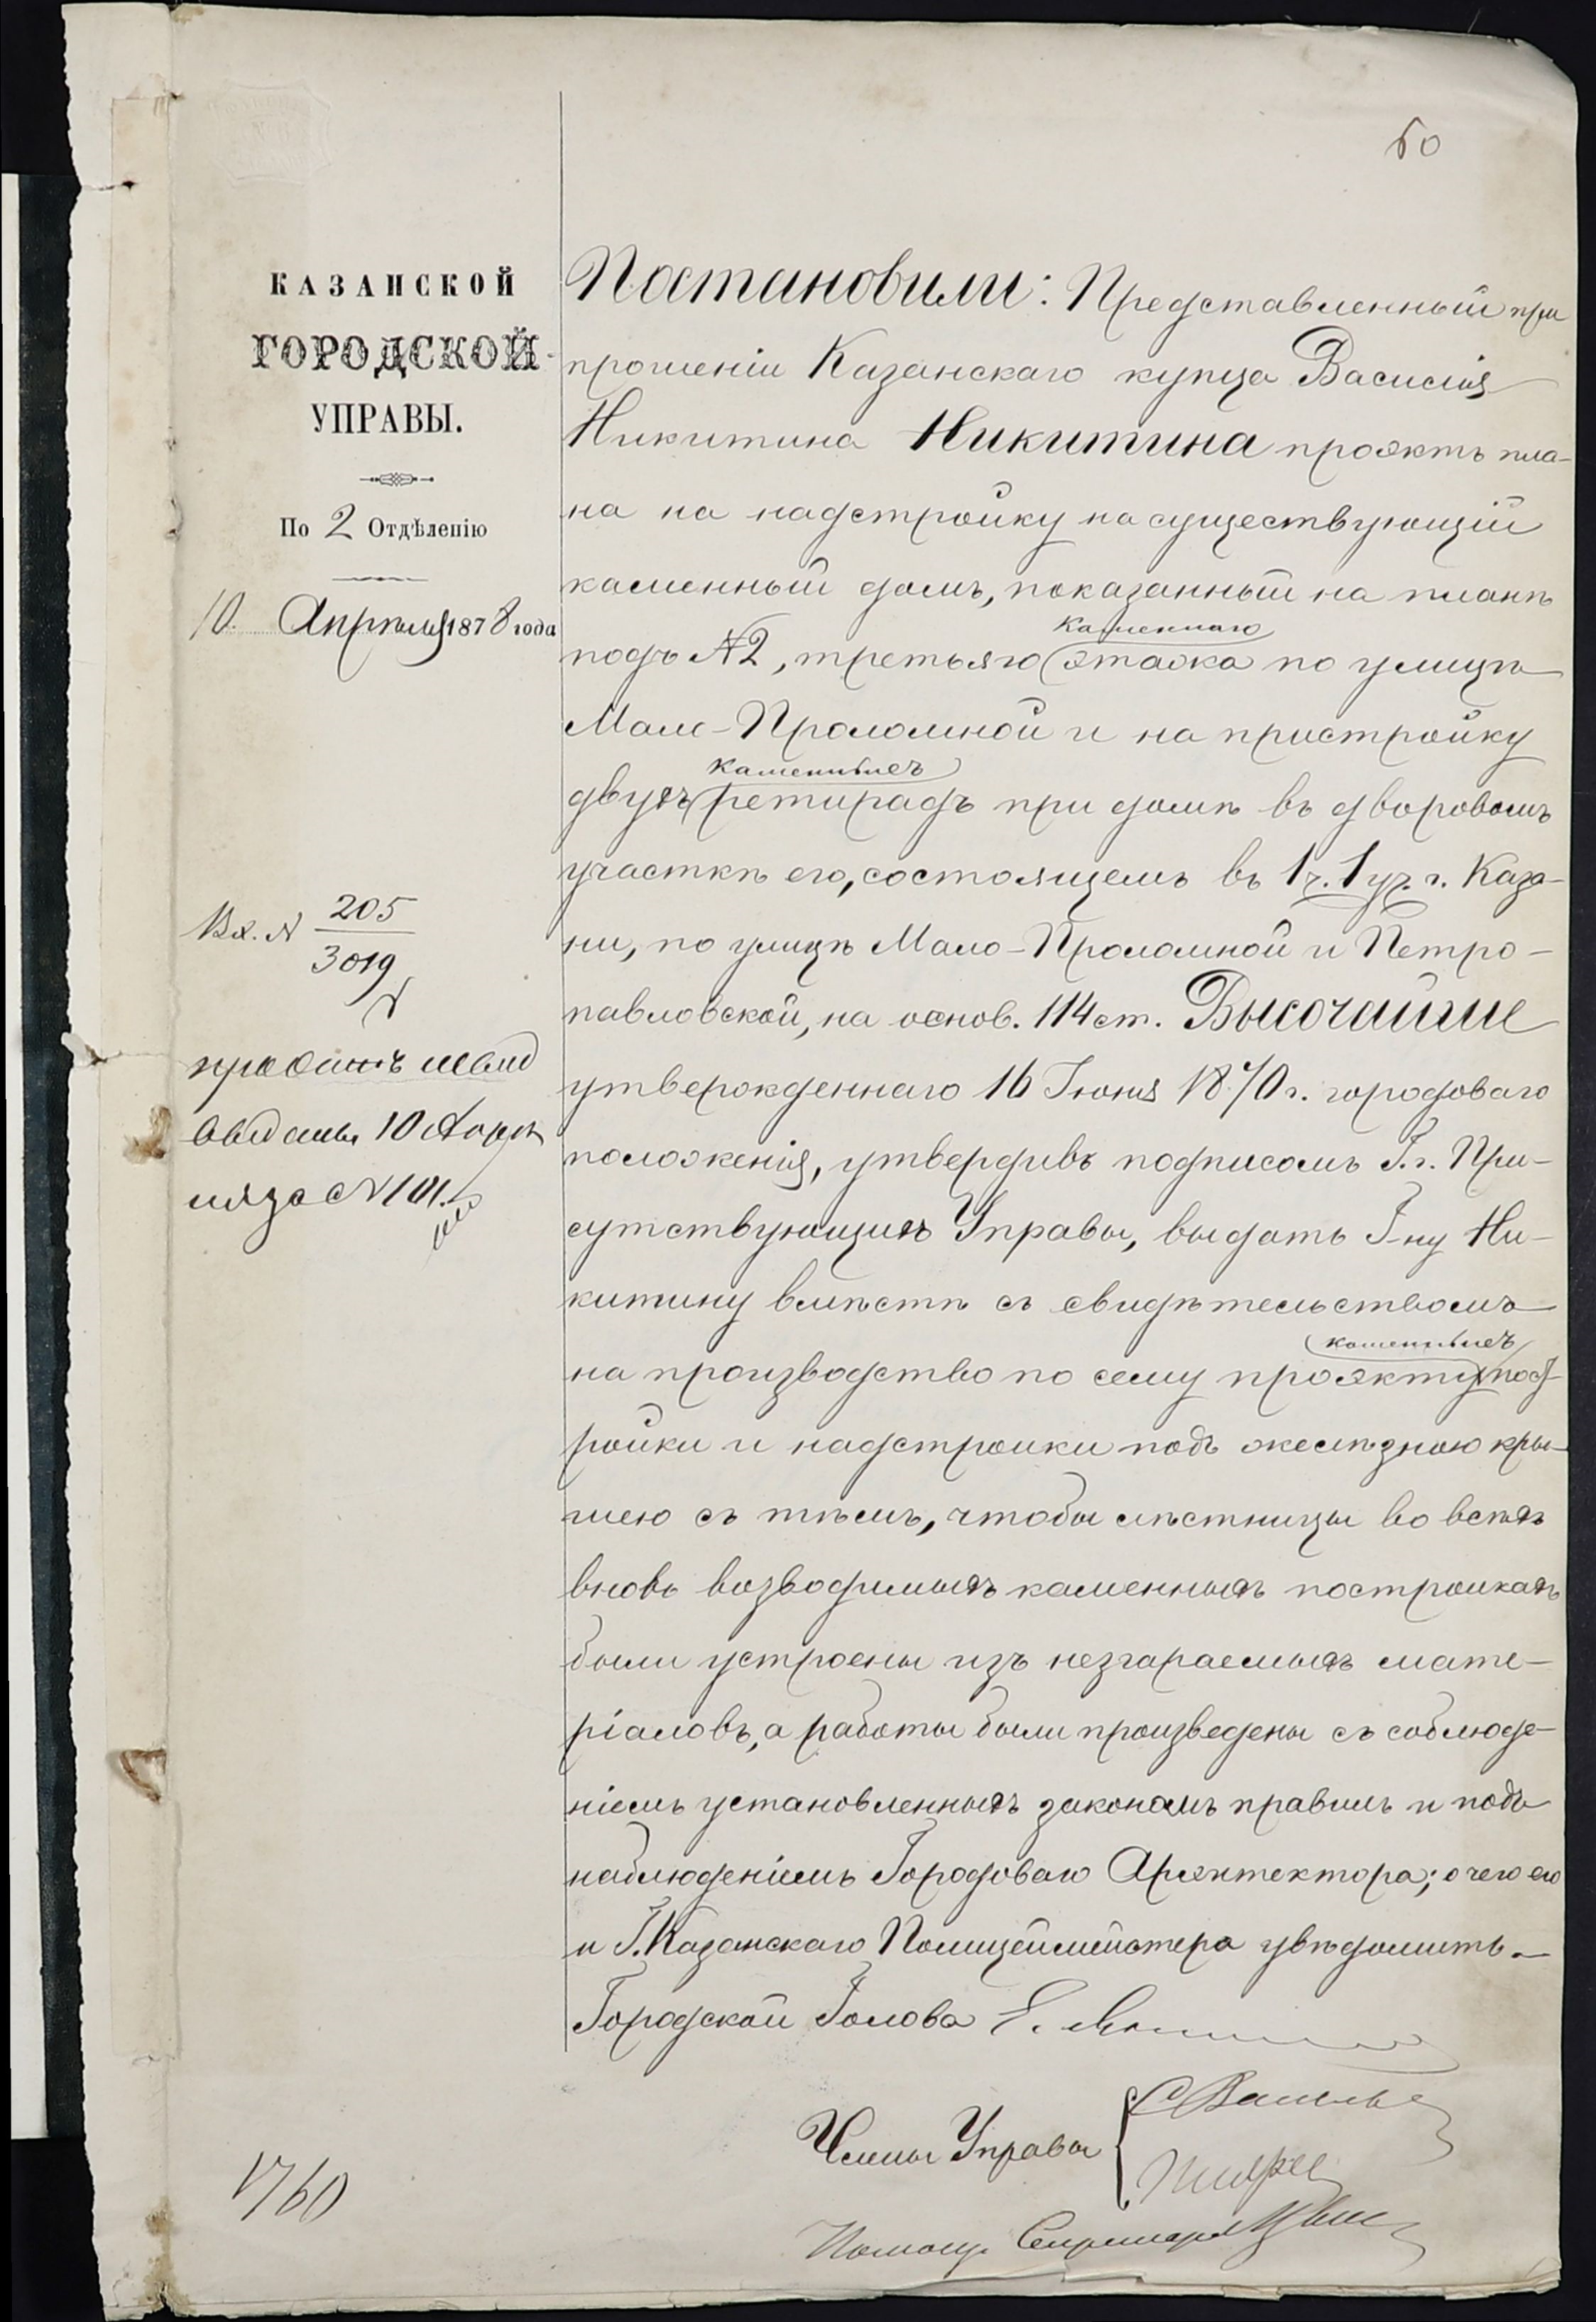 60
КАЗАНСКОЙ
ГОРОДСКОЙ
УПРАВЫ.
По 2 Отдѣленію
10 Апрѣля 1878 года
Вх. № 205
3019
10 Апрѣ
ля за № 101
1760
Постановили: Представленный при
прошеніи Казанскаго купца Василія
Никитина Никитина проэктъ пла-
на на надстройку на существующій
каменный домъ, показанный на планѣ
каменнаго
подъ №2, третьяго этажа по улицѣ
Мало-Проломной и на пристройку
каменныхъ
двухъ ретирадъ при домѣ въ дворовомъ
участкѣ его, состоящемъ въ 1 ч. 1 уч. г. Каза-
ни, по улицѣ Мало-Проломной и Петро-
павловской, на основ. 114 ст. Высочайше
утвержденнаго 16 Іюня 1870 г. городоваго
положенія, утвердивъ подписомъ Г.г. При-
сутствующихъ Управы, выдать Г-ну Ни-
китину вмѣстѣ съ свидѣтельствомъ
каменныхъ
на производство по сему проэкту пост-
ройки и надстройки подъ желѣзною кры-
шею съ тѣмъ, чтобы лѣстницы во всѣхъ
вновь возводимыхъ каменныхъ постройкахъ
были устроены изъ незгараемыхъ мате-
ріаловъ, а работы были произведены съ соблюде-
ніемъ установленныхъ закономъ правилъ и подъ
наблюденіемъ Городоваго Архитектора; о чего его
и Г. Казанскаго Полицеймейстера увѣдомить.
Городской Голова Е.
Члены Управы
Помощ. Секретаря